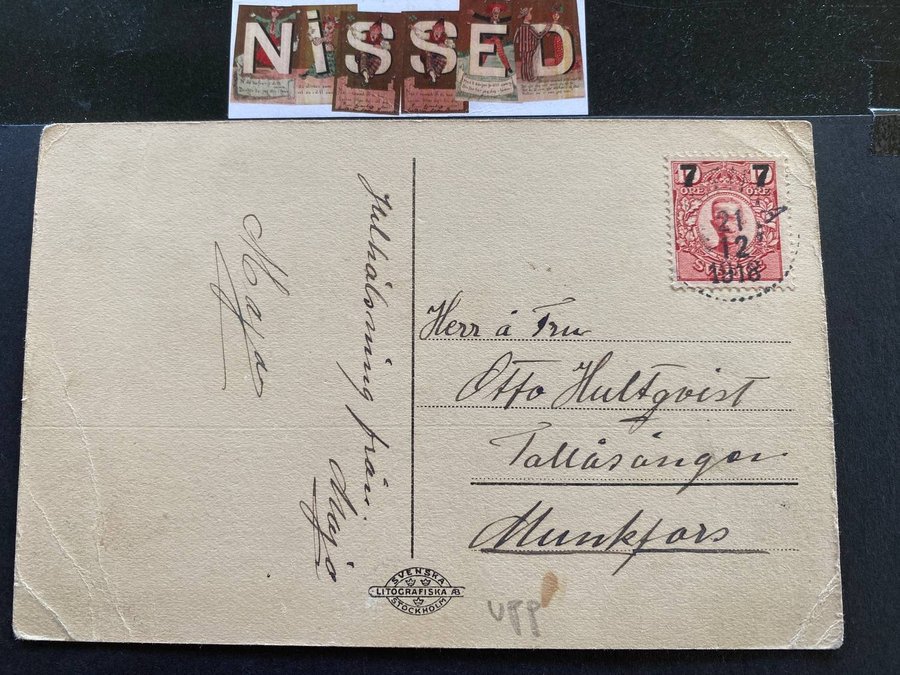 NiSSED
7 7
ÖRE ÖRE
21
12
1918
Julhälsning från
Maja
Maja
Herr å Fru
Otto Hultqvist
Tallåsängen
Munkfors
SVENSKA
LITOGRAFISKA AB
STOCKHOLM
UPP